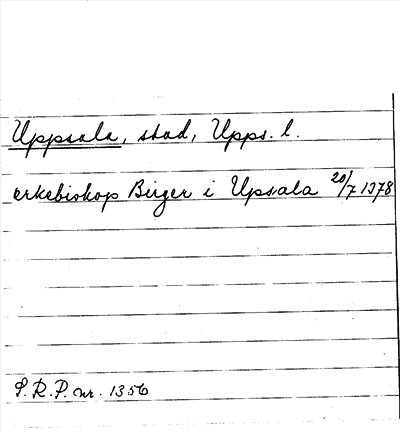 Uppsala, stad, Upps. l.
erkebiskop Birger i Upsala 20/7 1378
S.R.P. nr. 1356